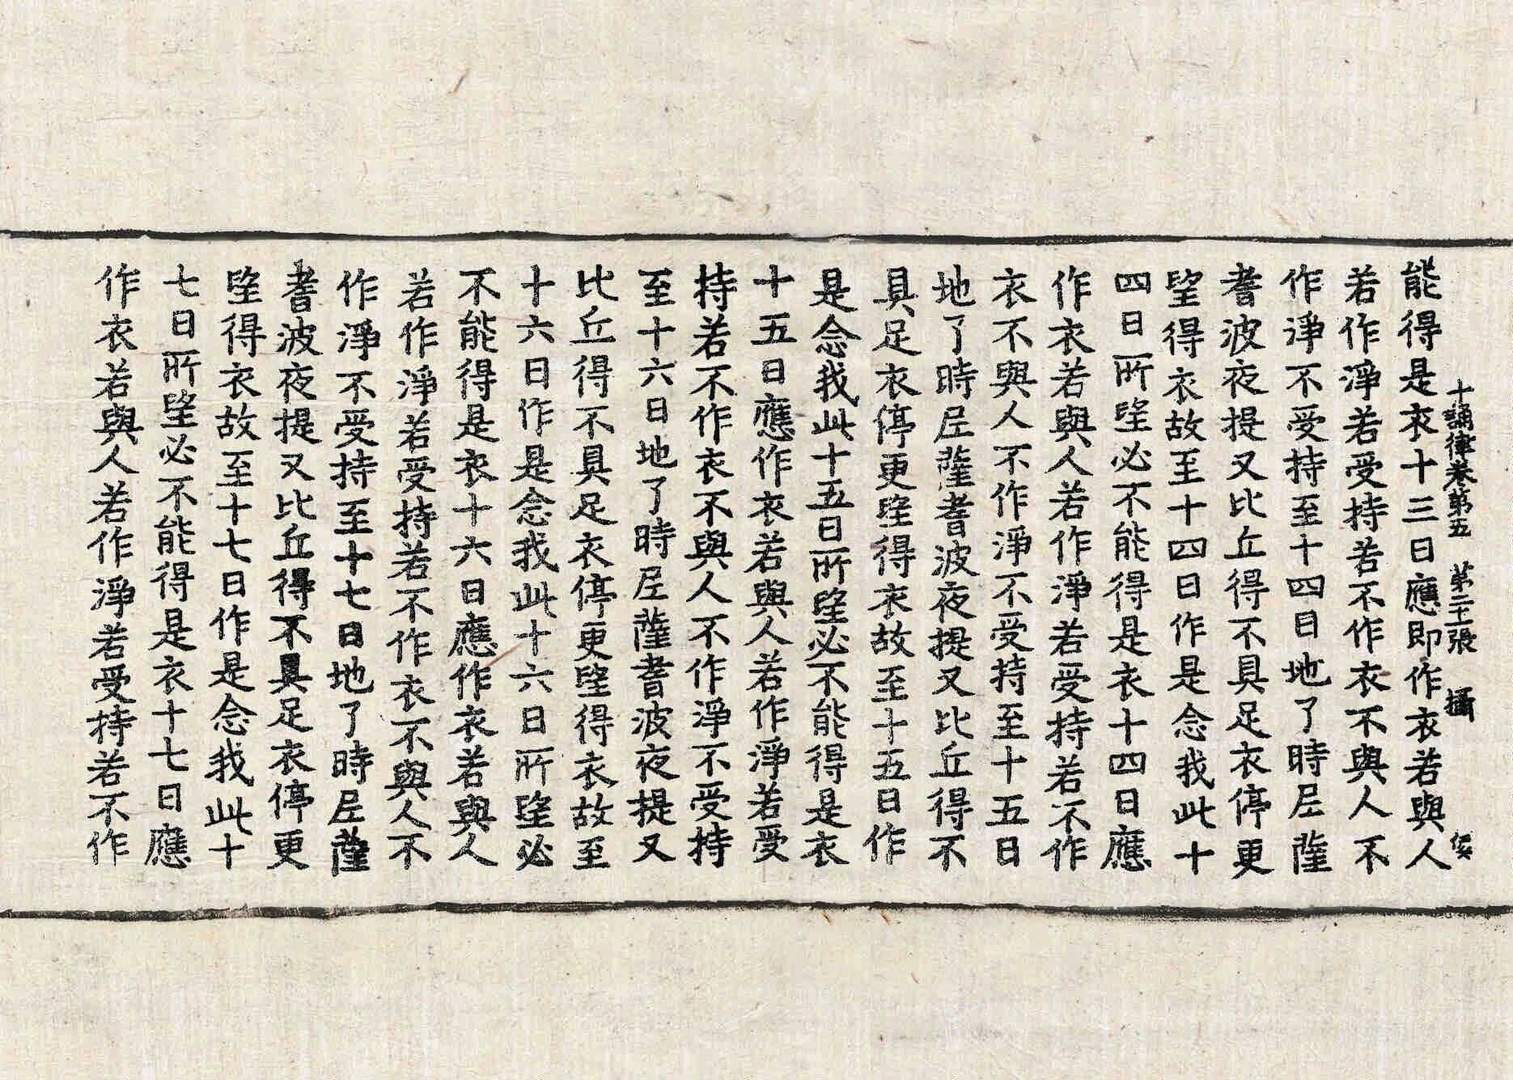 十誦律卷第五　第二十張　攝
能得是衣十三日應即作衣若與人
若作淨若受持若不作衣不與人不
作淨不受持至十四日地了時尼薩
耆波夜提又比丘得不具足衣停更
望得衣故至十四日作是念我此十
四日所望必不能得是衣十四日應
作衣若與人若作淨若受持若不作
衣不與人不作淨不受持至十五日
地了時尼薩耆波夜提又比丘得不
具足衣停更望得衣故至十五日作
是念我此十五日所望必不能得是衣
十五日應作衣若與人若作淨若受
持若不作衣不與人不作淨不受持
至十六日地了時尼薩耆波夜提又
比丘得不具足衣停更望得衣故至
十六日作是念我此十六日所望必
不能得是衣十六日應作衣若與人
若作淨若受持若不作衣不與人不
作淨不受持至十七日地了時尼薩
耆波夜提又比丘得不具足衣停更
望得衣故至十七日作是念我此十
七日所望必不能得是衣十七日應
作衣若與人若作淨若受持若不作